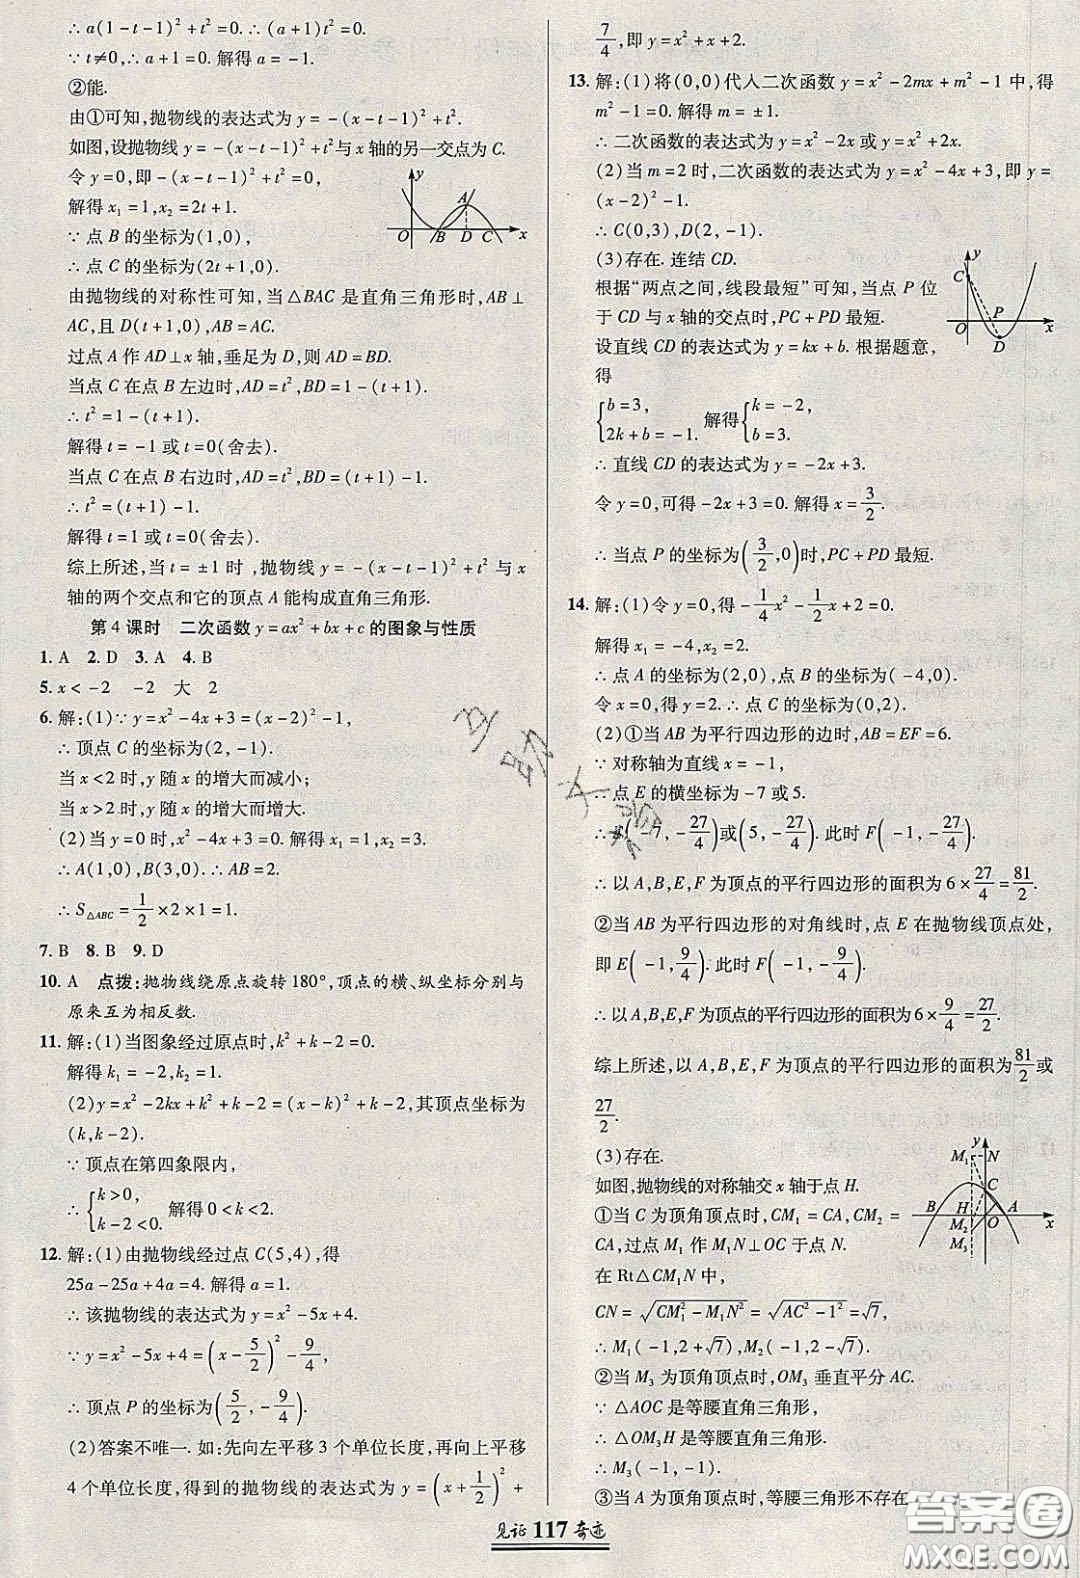 ∴ a(1-t-1)²+t²=0. ∴ (a+1)t²=0.
∵ t≠0, ∴ a+1=0. 解得 a=-1.
②能.
由①可知,抛物线的表达式为 y=-(x-t-1)²+t².
如图,设抛物线 y=-(x-t-1)²+t²与 x 轴的另一交点为 C.
令 y=0,即-(x-t-1)²+t²=0,
解得 x₁=1,x₂=2t+1.
∵ 点 B 的坐标为(1,0),
∴ 点 C 的坐标为(2t+1,0).
y
A
O B D C x
由抛物线的对称性可知,当△BAC 是直角三角形时,AB⊥
AC,且 D(t+1,0),AB=AC.
过点 A 作 AD⊥x 轴,垂足为 D,则 AD=BD.
当点 C 在点 B 左边时,AD=t²,BD=1-(t+1).
∴ t²=1-(t+1).
解得 t=-1 或 t=0(舍去).
当点 C 在点 B 右边时,AD=t²,BD=(t+1)-1.
∴ t²=(t+1)-1.
解得 t=1 或 t=0(舍去).
综上所述,当 t=±1 时,抛物线 y=-(x-t-1)²+t² 与 x
轴的两个交点和它的顶点 A 能构成直角三角形.
第 4 课时 二次函数 y=ax²+bx+c 的图象与性质
1. A 2. D 3. A 4. B
5. x<-2 -2 大 2
6. 解:(1)∵ y=x²-4x+3=(x-2)²-1,
∴ 顶点 C 的坐标为(2,-1).
当 x<2 时,y 随 x 的增大而减小;
当 x>2 时,y 随 x 的增大而增大.
(2)当 y=0 时,x²-4x+3=0. 解得 x₁=1,x₂=3.
∴ A(1,0),B(3,0). ∴ AB=2.
∴ S△ABC=1/2×2×1=1.
7. B 8. B 9. D
10. A 点拨:抛物线绕原点旋转 180°,顶点的横、纵坐标分别与
原来互为相反数.
11. 解:(1)当图象经过原点时,k²+k-2=0.
解得 k₁=-2,k₂=1.
(2)y=x²-2kx+k²+k-2=(x-k)²+k-2,其顶点坐标为
(k,k-2).
∵ 顶点在第四象限内,
∴ {k>0, k-2<0. 解得 0<k<2.
12. 解:(1)由抛物线经过点 C(5,4),得
25a-25a+4a=4. 解得 a=1.
∴ 该抛物线的表达式为 y=x²-5x+4.
∵ y=x²-5x+4=(x-5/2)²-9/4,
∴ 顶点 P 的坐标为(5/2,-9/4).
(2)答案不唯一. 如:先向左平移 3 个单位长度,再向上平移
4 个单位长度,得到的抛物线的表达式为 y=(x+1/2)²+
7/4,即 y=x²+x+2.
13. 解:(1)将(0,0)代入二次函数 y=x²-2mx+m²-1 中,得
m²-1=0. 解得 m=±1.
∴ 二次函数的表达式为 y=x²-2x 或 y=x²+2x.
(2)当 m=2 时,二次函数的表达式为 y=x²-4x+3,即 y=
(x-2)²-1.
∴ C(0,3),D(2,-1).
(3)存在. 连结 CD.
根据“两点之间,线段最短”可知,当点 P 位
于 CD 与 x 轴的交点时,PC+PD 最短.
设直线 CD 的表达式为 y=kx+b. 根据题意,
得
y
C
P
O D x
{b=3, 2k+b=-1. 解得{k=-2, b=3.
∴ 直线 CD 的表达式为 y=-2x+3.
令 y=0,可得-2x+3=0. 解得 x=3/2.
∴ 当点 P 的坐标为(3/2,0)时,PC+PD 最短.
14. 解:(1)令 y=0,得-1/4x²-1/2x+2=0.
解得 x₁=-4,x₂=2.
∴ 点 A 的坐标为(2,0),点 B 的坐标为(-4,0).
令 x=0,得 y=2. ∴ 点 C 的坐标为(0,2).
(2)①当 AB 为平行四边形的边时,AB=EF=6.
∵ 对称轴为直线 x=-1,
∴ 点 E 的横坐标为-7 或 5.
∴ E(-7,-27/4)或(5,-27/4). 此时 F(-1,-27/4).
∴ 以 A,B,E,F 为顶点的平行四边形的面积为 6×27/4=81/2.
②当 AB 为平行四边形的对角线时,点 E 在抛物线顶点处,
即 E(-1,9/4). 此时 F(-1,-9/4).
∴ 以 A,B,E,F 为顶点的平行四边形的面积为 6×9/4=27/2.
综上所述,以 A,B,E,F 为顶点的平行四边形的面积为81/2或
27/2.
(3)存在.
如图,抛物线的对称轴交 x 轴于点 H.
①当 C 为顶角顶点时,CM₁=CA,CM₂=
CA,过点 M₁ 作 M₁N⊥OC 于点 N.
在 Rt△CM₁N 中,
M₁ N
C
B H A
M₂ O x
M₃
CN=√(CM₁²-M₁N²)=√(AC²-1²)=√7,
∴ M₁(-1,2+√7),M₂(-1,2-√7).
②当 M₃ 为顶角顶点时,OM₃ 垂直平分 AC.
∵ △AOC 是等腰直角三角形,
∴ △OM₃H 是等腰直角三角形.
∴ M₃(-1,-1).
③当 A 为顶角顶点时,等腰三角形不存在.
见证 117 奇迹
答案圈
MXQE.COM